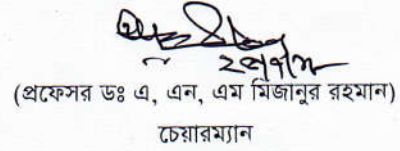 (প্রফেসর ডঃ এ, এন, এম মিজানুর রহমান)
চেয়ারম্যান